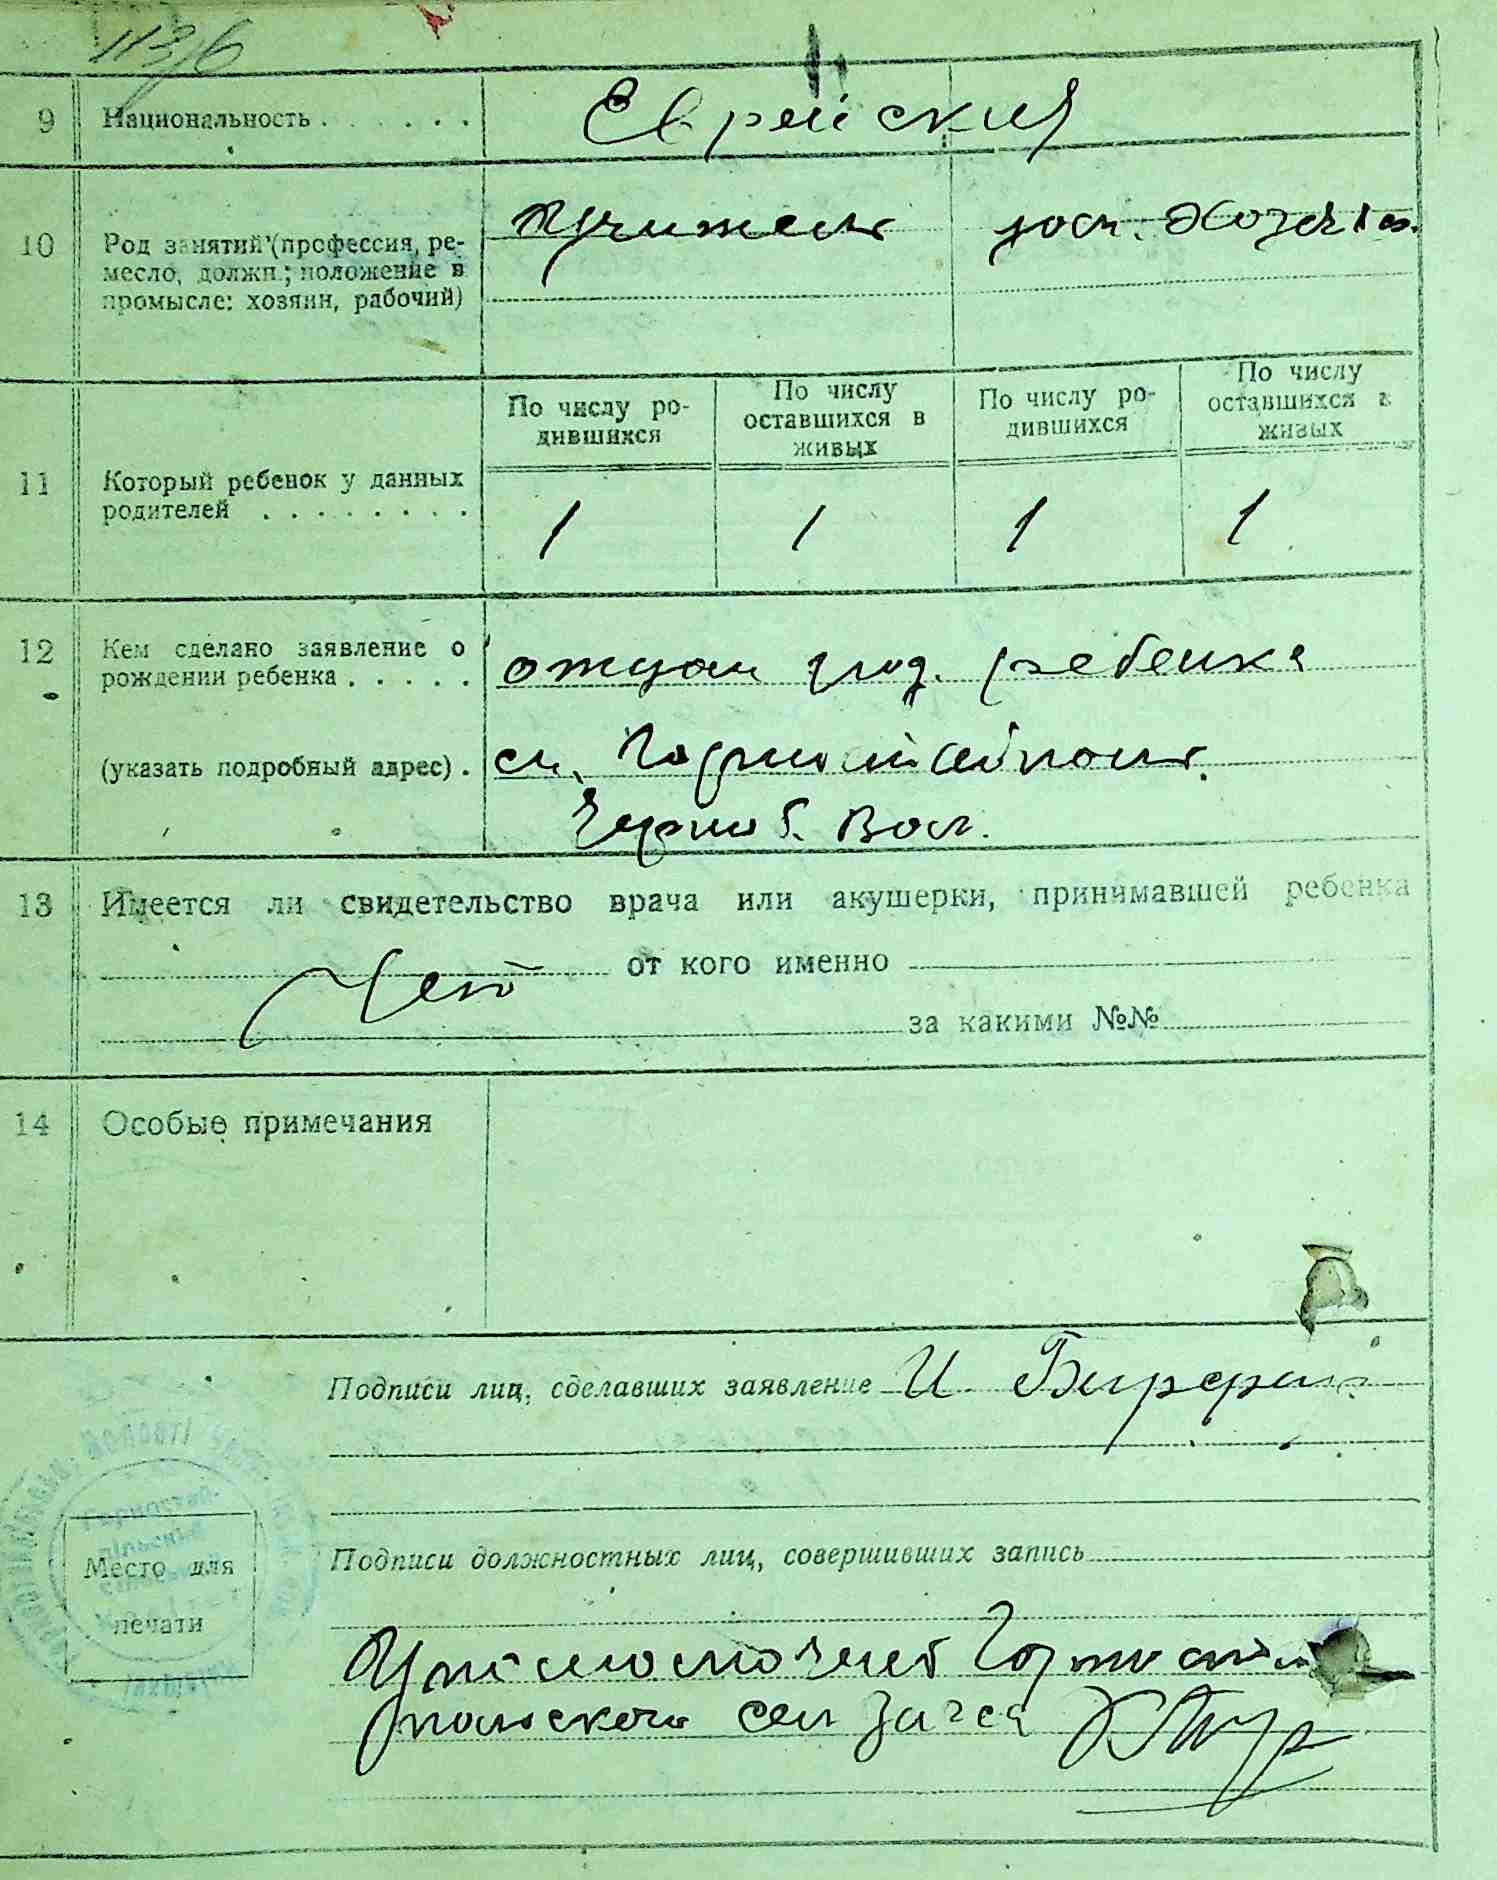 113/6
9 Национальность . . . . . . . Еврейская
10 Род занятий (профессия, ре-
месло, должн.; положение в
промысле: хозяин, рабочий)
Учитель дом. Хозяйка
По числу ро-
дившихся
По числу
оставшихся в
живых
По числу ро-
дившихся
По числу
оставшихся в
живых
11 Который ребенок у данных
родителей . . . . . . . .
1 1 1 1
12 Кем сделано заявление о
рождении ребенка . . . . .
отцом ребенка
(указать подробный адрес) .
м. Горностайполь
Черноб. Вол.
13 Имеется ли свидетельство врача или акушерки, принимавшей ребенка
Нет от кого именно
за какими №№
14 Особые примечания
Подписи лиц, сделавших заявление И.
Подписи должностных лиц, совершивших запись
Место для
печати
Уполномоченный Горностай
польского сел загса